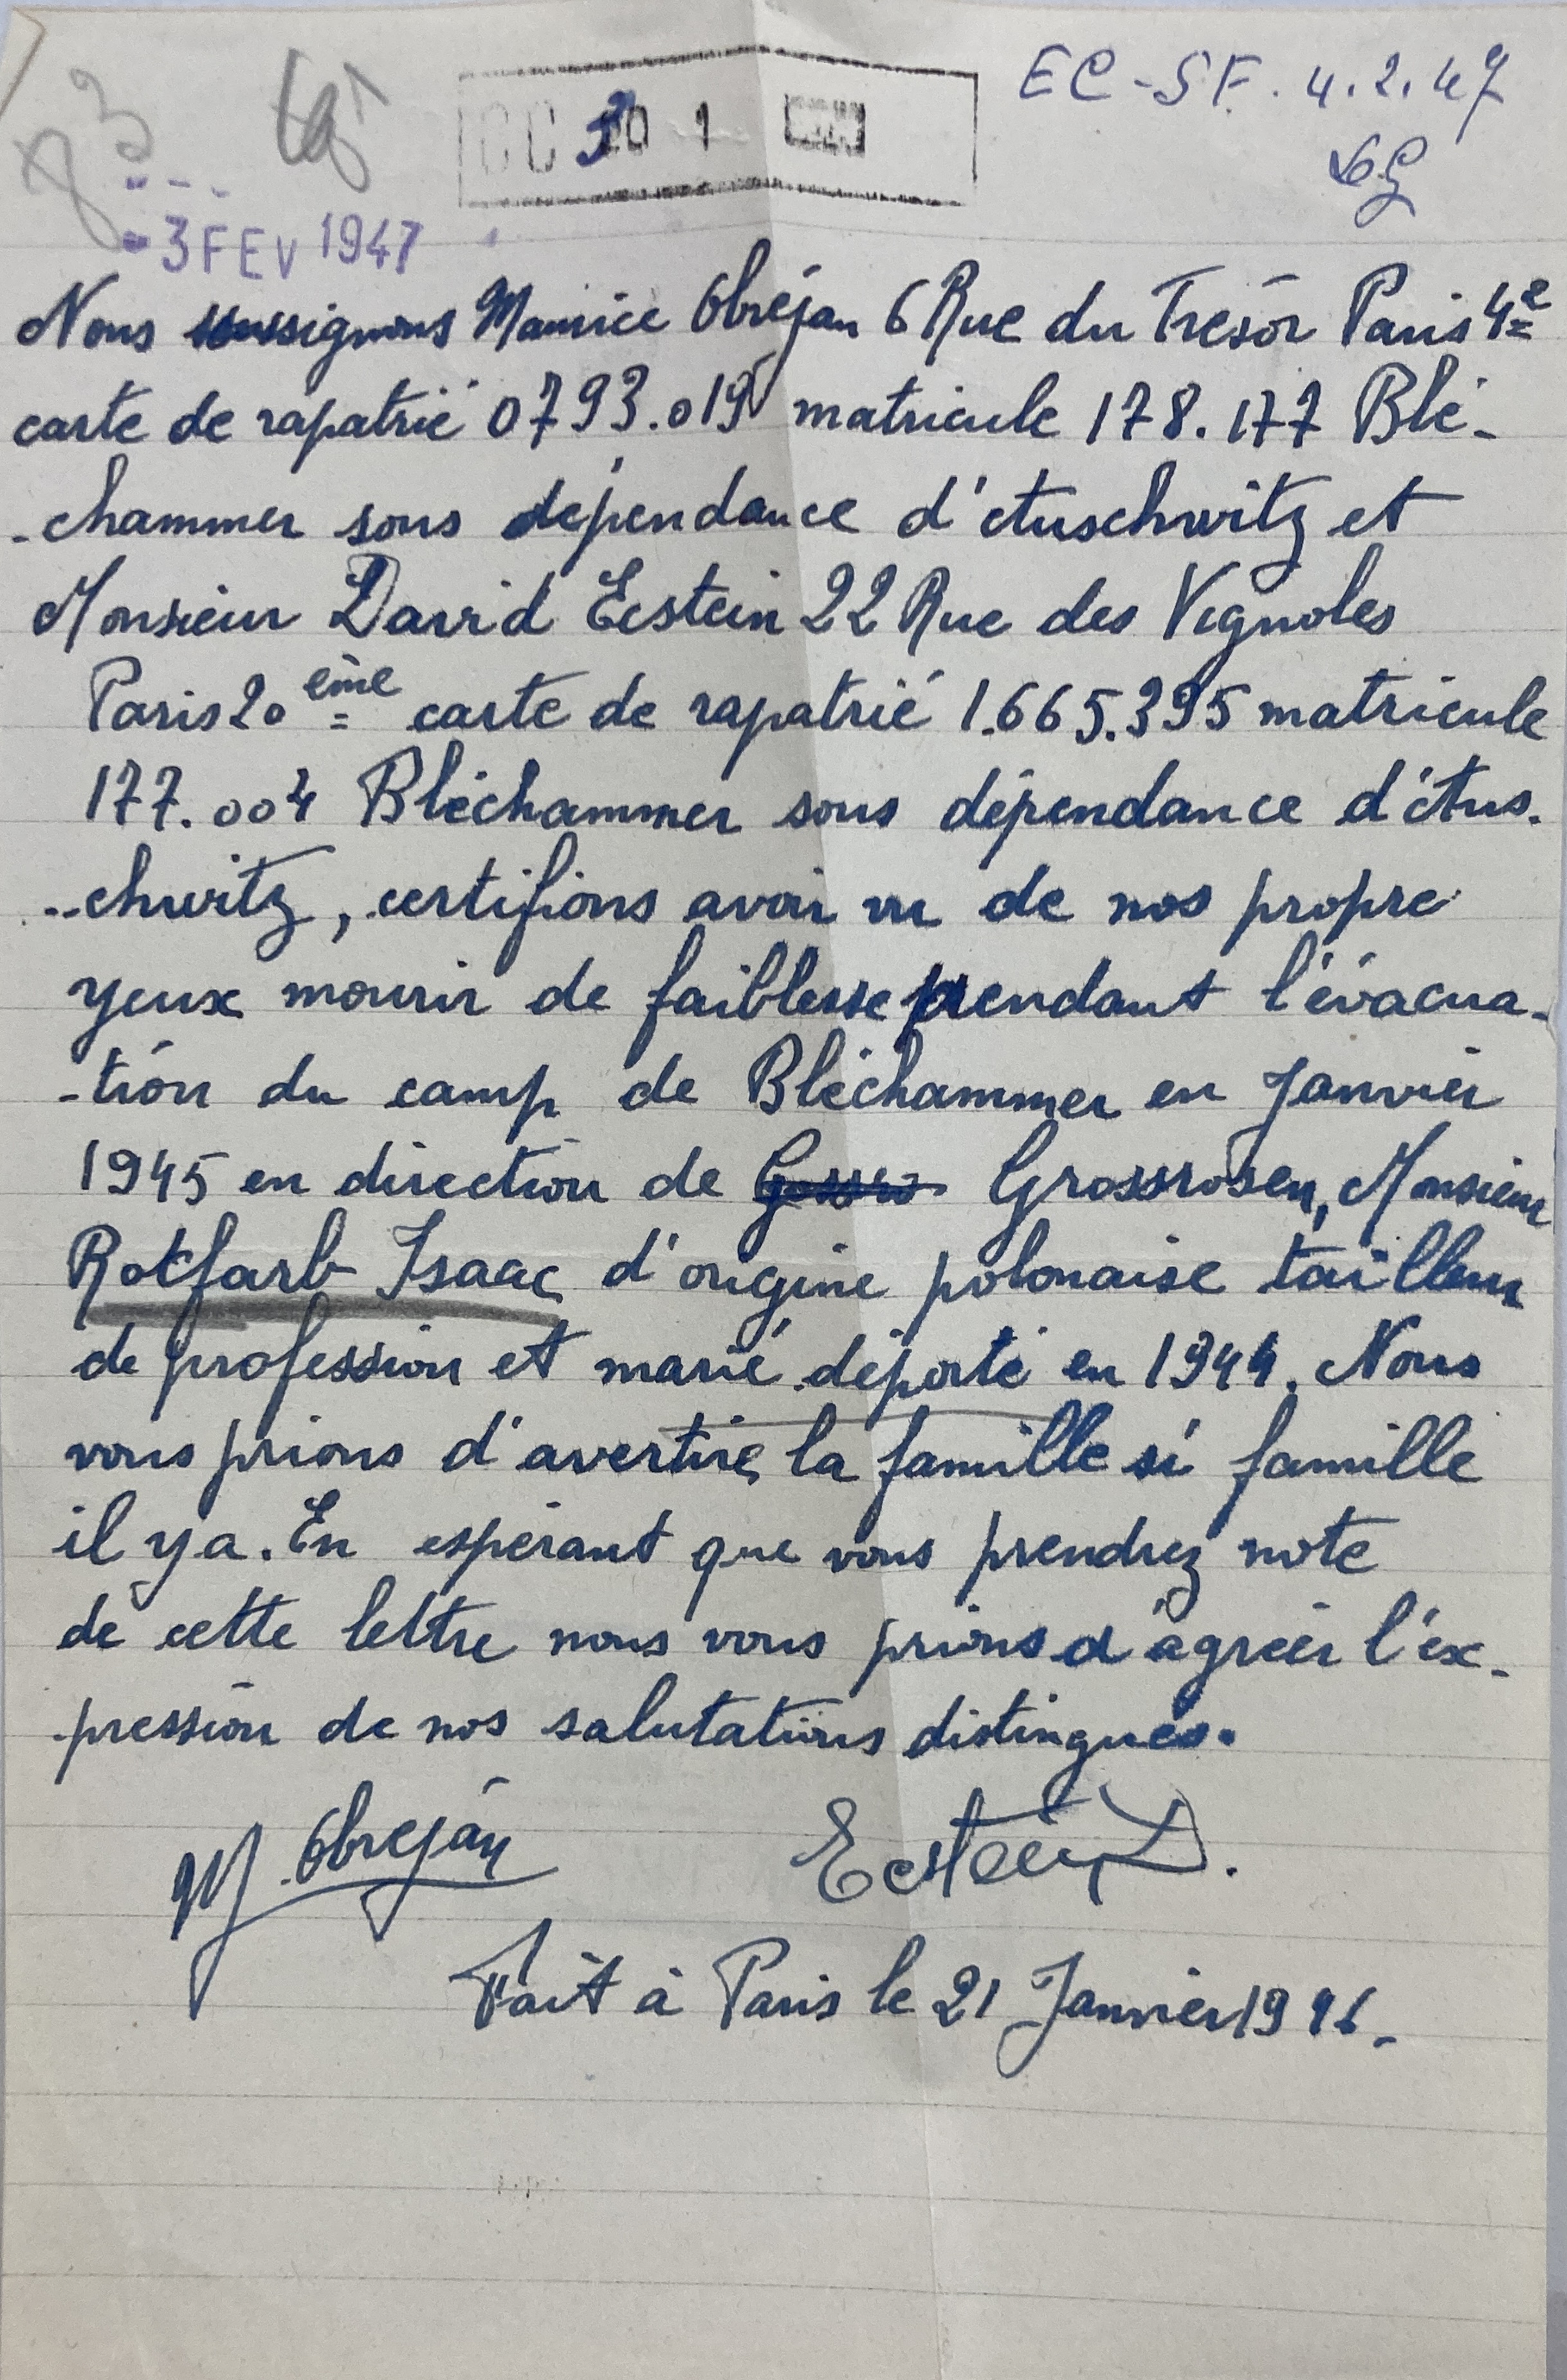 EC-SF. 4.2.47
- 3 FEV 1947
Nous soussignons Maurice Obréjan 6 Rue du Trésor Paris 4e
carte de rapatrié 0793.019 matricule 178.177 Blé-
-chammer sous dépendance d'Auschwitz et
Monsieur David Ecstein 22 Rue des Vignoles
Paris 20ème carte de rapatrié 1.665.395 matricule
177.004 Bléchammer sous dépendance d'Aus-
-chwitz, certifions avoir vu de nos propre
yeux mourir de faiblesse pendant l'évacua-
-tion du camp de Bléchammer en Janvier
1945 en direction de Grossrosen, Monsieur
Rotfarb Isaac d'origine polonaise tailleur
de profession et marié déporté en 1944. Nous
vous prions d'avertir la famille si famille
il y a. En espérant que vous prendrez note
de cette lettre nous vous prions d'agréer l'ex-
-pression de nos salutations distingués.
M. Obrejan Ecstein D.
Fait à Paris le 21 Janvier 1946-